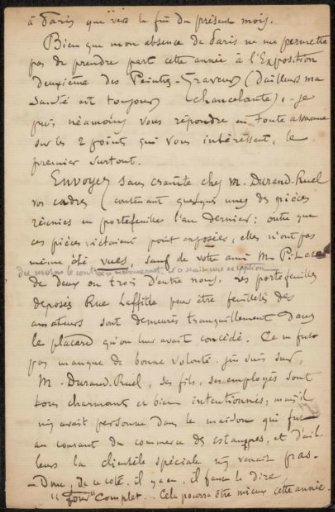 à Paris que vers la fin du présent mois.
Bien que mon absence de Paris ne me permette
pas de prendre part cette année à l'Exposition
deuxième des Peintres-Graveurs (d'ailleurs ma
santé est toujours chancelante), je
puis néanmoins vous répondre en toute assurance
sur les 2 points qui vous intéressent, le
premier surtout.
Envoyez sans crainte chez M. Durand-Ruel
vos cadres contenant quelques unes des pièces
réunies en portefeuilles l'an dernier: outre que
ces pièces n'étaient point exposées, elles n'ont pas
même été vues, sauf de votre ami M. P.
de deux ou trois d'entre nous, ces portefeuilles
déposés Rue Laffitte pour être feuilletés des
amateurs sont demeurés tranquillement dans
le placard qu'on leur avait concédé. Ce ne fut
pas manque de bonne volonté j'en suis sûr,
M. Durand-Ruel, ses fils, ses employés sont
tous charmants et bien intentionnés; mais il
n'y avait personne dans la maison qui fut
au courant du commerce des estampes, et d'ail-
leurs la clientèle spéciale n'y venait pas.
- Donc, de ce côté, il y a eu, il faut le dire
"four" complet. Cela pourra être mieux cette année.